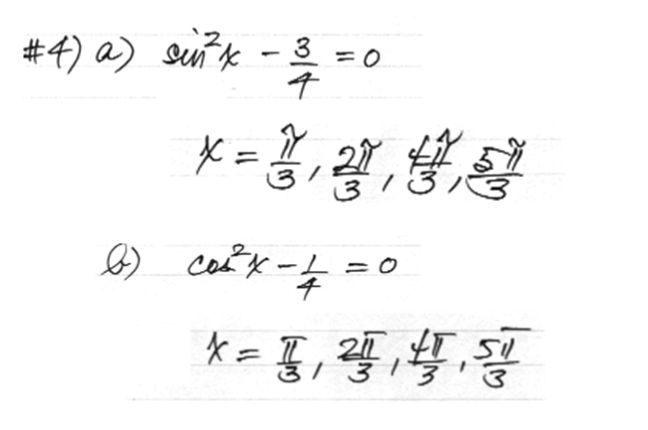 #4) a) sin²x - 3/4 = 0
x = π/3, 2π/3, 4π/3, 5π/3
b) cos²x - 1/4 = 0
x = π/3, 2π/3, 4π/3, 5π/3